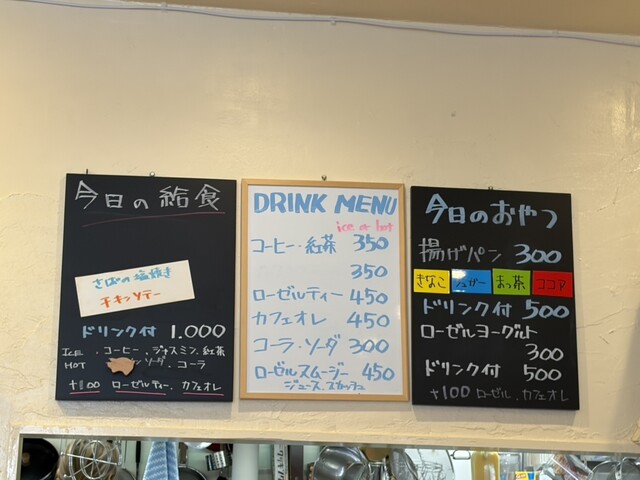 今日の給食
さばの塩焼き
チキンソテー
ドリンク付 1.000
ICE .コーヒー.ジャスミン.紅茶
HOT ソーダ.コーラ
+100 ローゼルティー.カフェオレ
DRINK MENU
ice or hot
コーヒー・紅茶 350
350
ローゼルティー 450
カフェオレ 450
コーラ.ソーダ 300
ローゼルスムージー 450
ジュース.スカッシュ
今日のおやつ
揚げパン 300
きなこ シュガー まっ茶 ココア
ドリンク付 500
ローゼルヨーグルト
300
ドリンク付 500
+100 ローゼル.カフェオレ